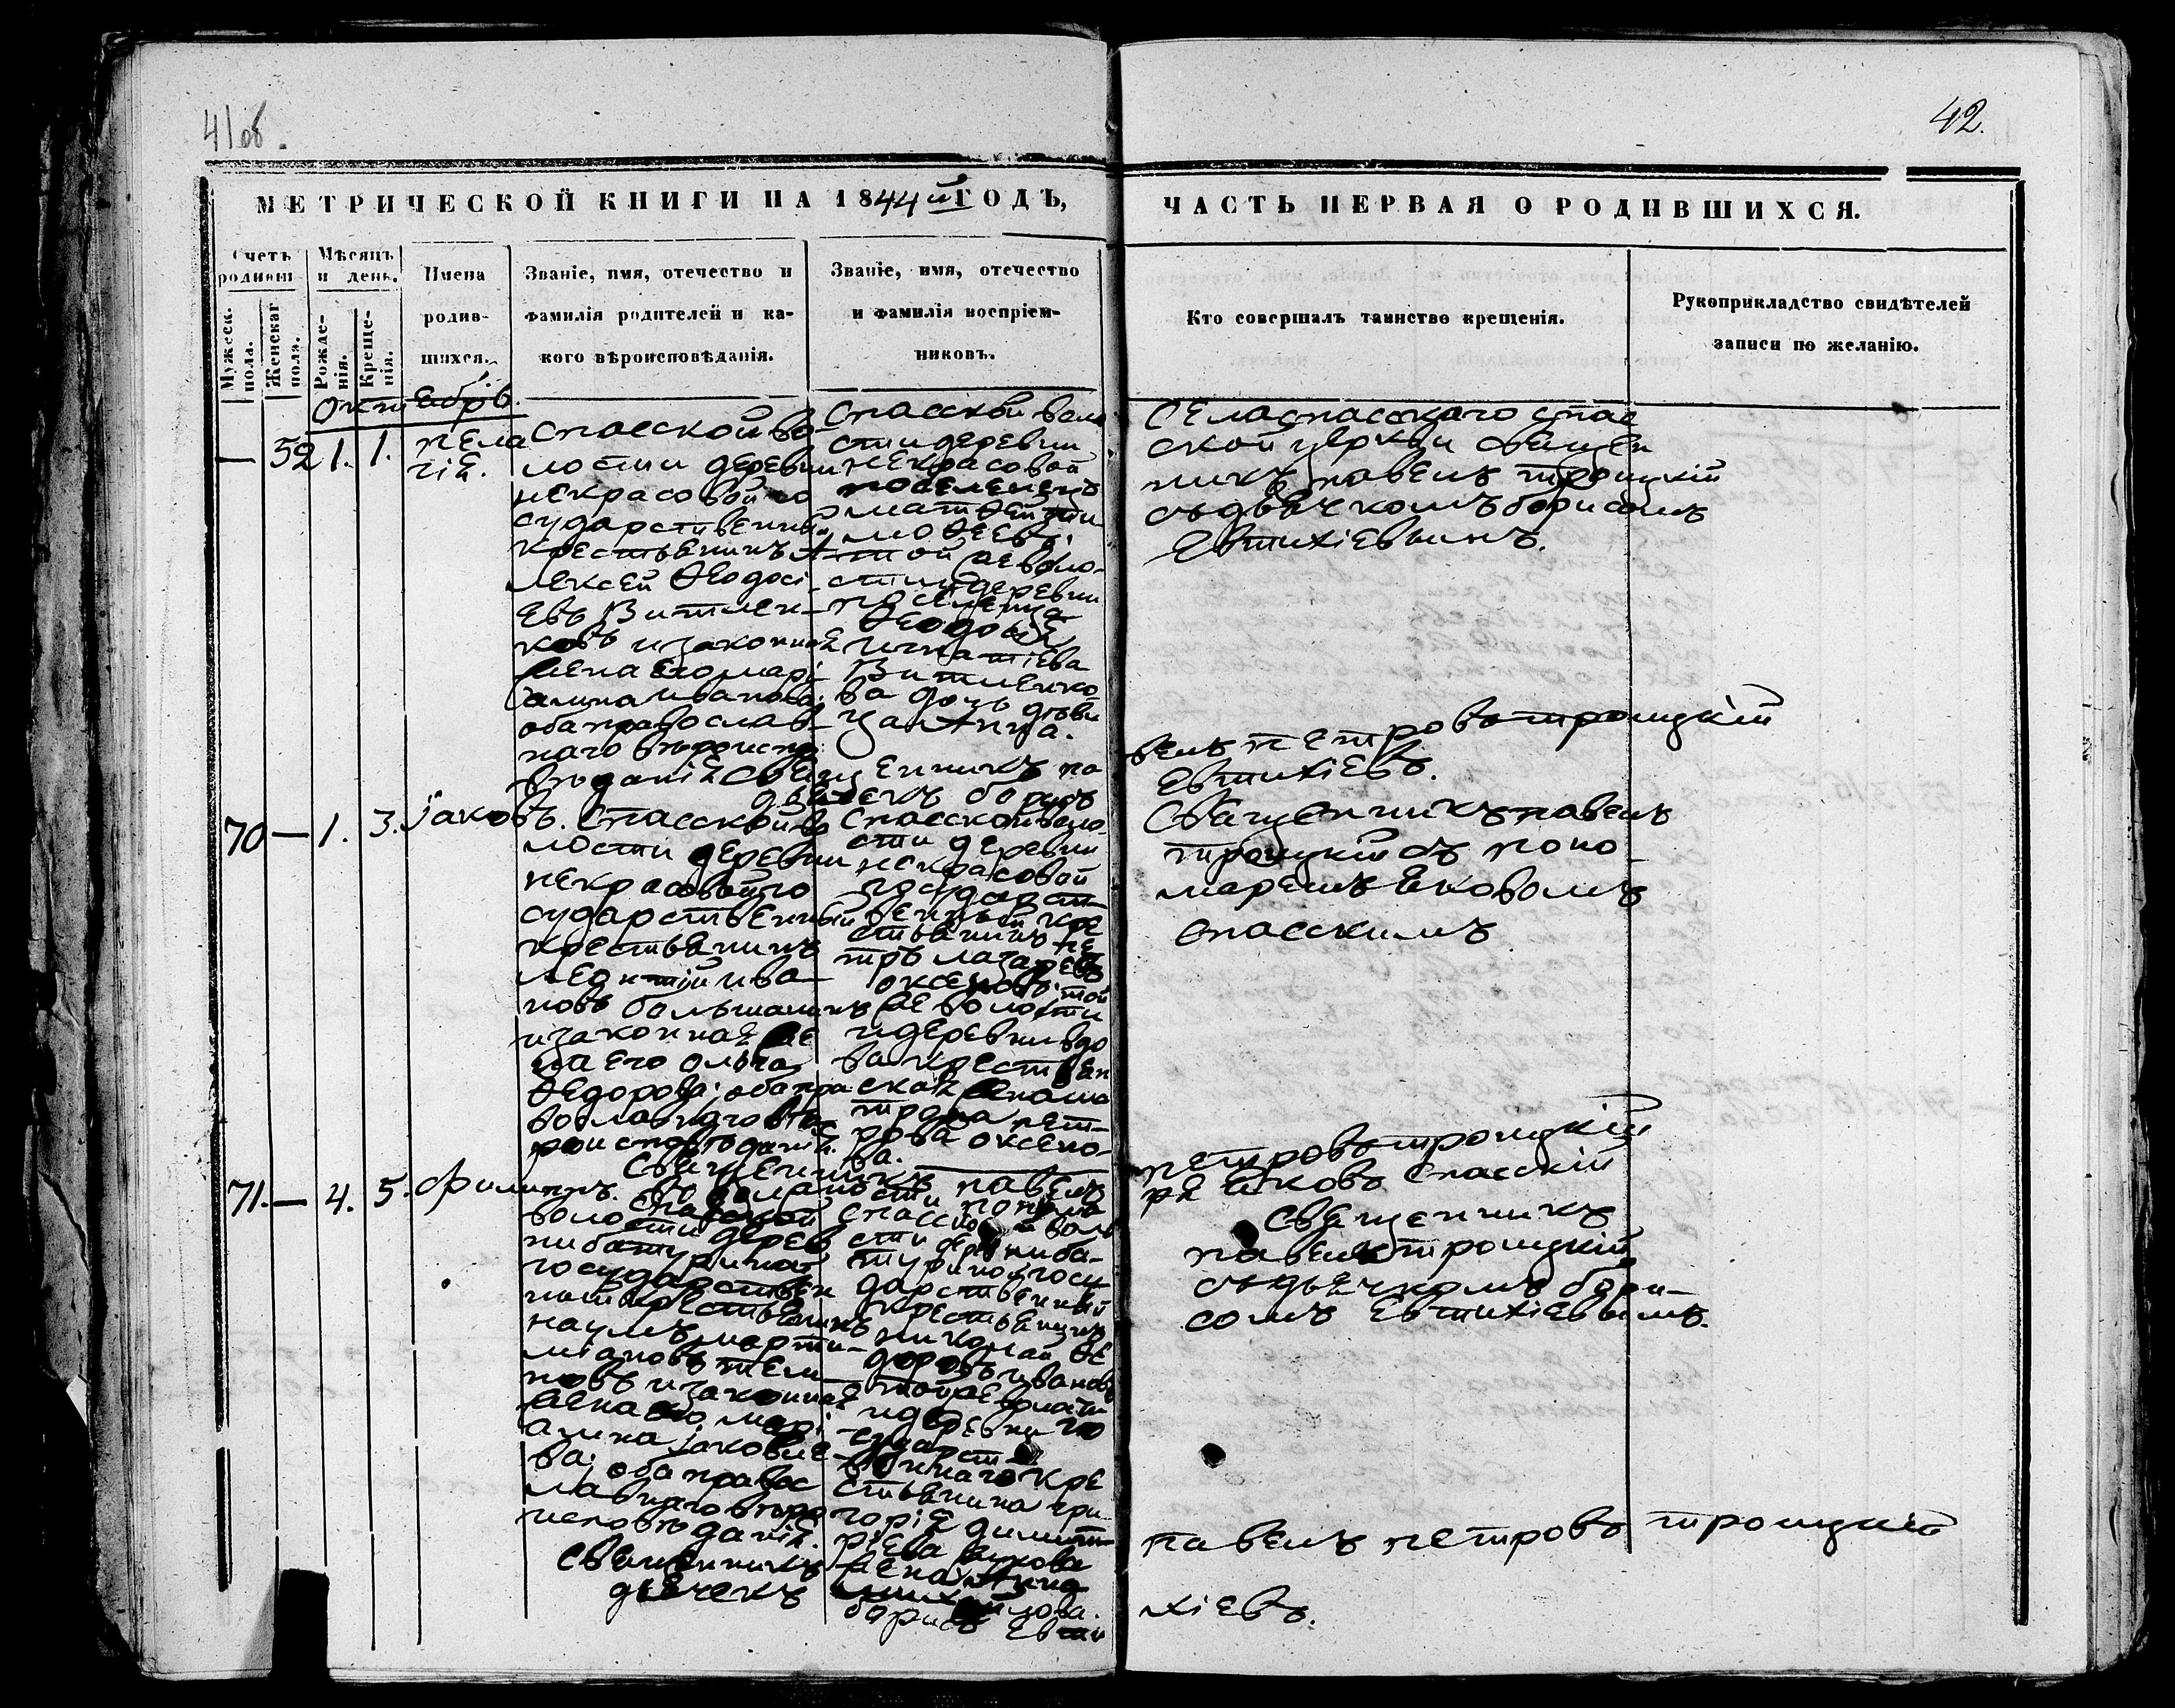 41об.
42.
МЕТРИЧЕСКОЙ КНИГИ НА 1844й ГОДЪ,
ЧАСТЬ ПЕРВАЯ О РОДИВШИХСЯ.
Счетъ родивш
Мужеск. пола.
Женскаг пола.
Мѣсяцъ и день.
Рожде-
нія.
Креще-
нія.
Имена
родив-
шихся.
Званіе, имя, отечество и
фамилія родителей и ка-
кого вѣроисповѣданія.
Званіе, имя, отечество
и фамилія воспріем-
никовъ.
Кто совершалъ таинство крещенія.
Рукоприкладство свидѣтелей
записи по желанію.
октября.
— 52 1. 1.
пела
гія.
Спасской во
лости деревни
некрасовой го
сударственный
крестьянинъ А
лексей Ѳеодосі
евъ Витлен-
ковъ и законная
жена его марі
амна иванова;
оба православ
наго вѣроиспо
вѣданія
Спасской воло
сти деревни
некрасовой
поселенецъ
матѳей ти
моѳеевъ;
той же воло-
сти деревни
поселенца
Ѳеодосія
игнатіева
Витленко
ва дочь дѣви
ца Анна.
села спасскаго спас
ской церкви священ
никъ павелъ троицкій
съ дьячкомъ борисомъ
Евтихіевымъ.
Священникъ па
велъ петровъ троицкій
дьячекъ борисъ
Евтихіевъ.
70 — 1. 3. Іаковъ.
Спасской во
лости деревни
некрасовой го
сударственный
крестьянинъ
леонтій ива
новъ большанинъ
и законная же
на его ольга
Ѳедорова; оба пра
вославнаго вѣ
роисповѣданія.
Спасской воло
сти деревни
некрасовой
государст
венный кре
стьянинъ пе
тръ лазаревъ
оксеновъ; той
же волости
и деревни вдо
ва крестьян
ская жена ма
трона пет
рова оксено-
ва.
Священникъ павелъ
троицкій съ поно
маремъ Яковомъ
спасскимъ
Священникъ павелъ
петровъ троицкій
понома
рь Яковъ Спасскій
71. — 4. 5. филиппъ.
Спасской
волости дерев
ни батуриной
государствен
ной крестьянинъ
наумъ марти-
міановъ
новъ и законная
жена его марі
амна іаковле
ва; оба правос
лавнаго вѣро
исповѣданія.
Спасской воло
сти деревни ба-
туриной госу
дарственный
крестьянинъ
николай Ѳе
доровъ ивановъ
той же волости
и деревни го
сударст
веннаго кре
стьянина гри
горія димит
ріева
жена Анна
михайлова.
Священникъ
павелъ троицкій
съ дьячкомъ бори-
сомъ Евтихіевымъ.
Священникъ
павелъ петровъ троицкій
дьячекъ
борисъ Евти
хіевъ.